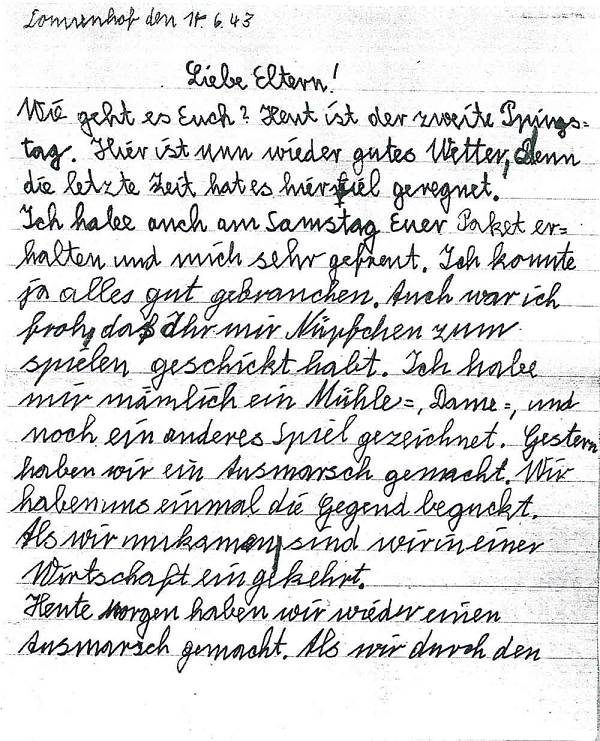 den 14.6.43
Liebe Eltern!
Wie geht es Euch? Heut ist der zweite Pfings=
tag. Hier ist nun wieder gutes Wetter, Denn
die letzte Zeit hat es hier viel geregnet.
Ich habe auch am Samstag Euer Paket er=
halten und mich sehr gefreut. Ich konnte
ja alles gut gebrauchen. Auch war ich
froh, daß Ihr mir Nüpfchen zum
spielen geschickt habt. Ich habe
mir nämlich ein Mühle=, Dame=, und
noch ein anderes Spiel gezeichnet. Gestern
haben wir ein Ausmarsch gemacht. Wir
haben uns einmal die Gegend beguckt.
Als wir umkamen, sind wir in einer
Wirtschaft eingekehrt.
Heute Morgen haben wir wieder einen
Ausmarsch gemacht. Als wir durch den